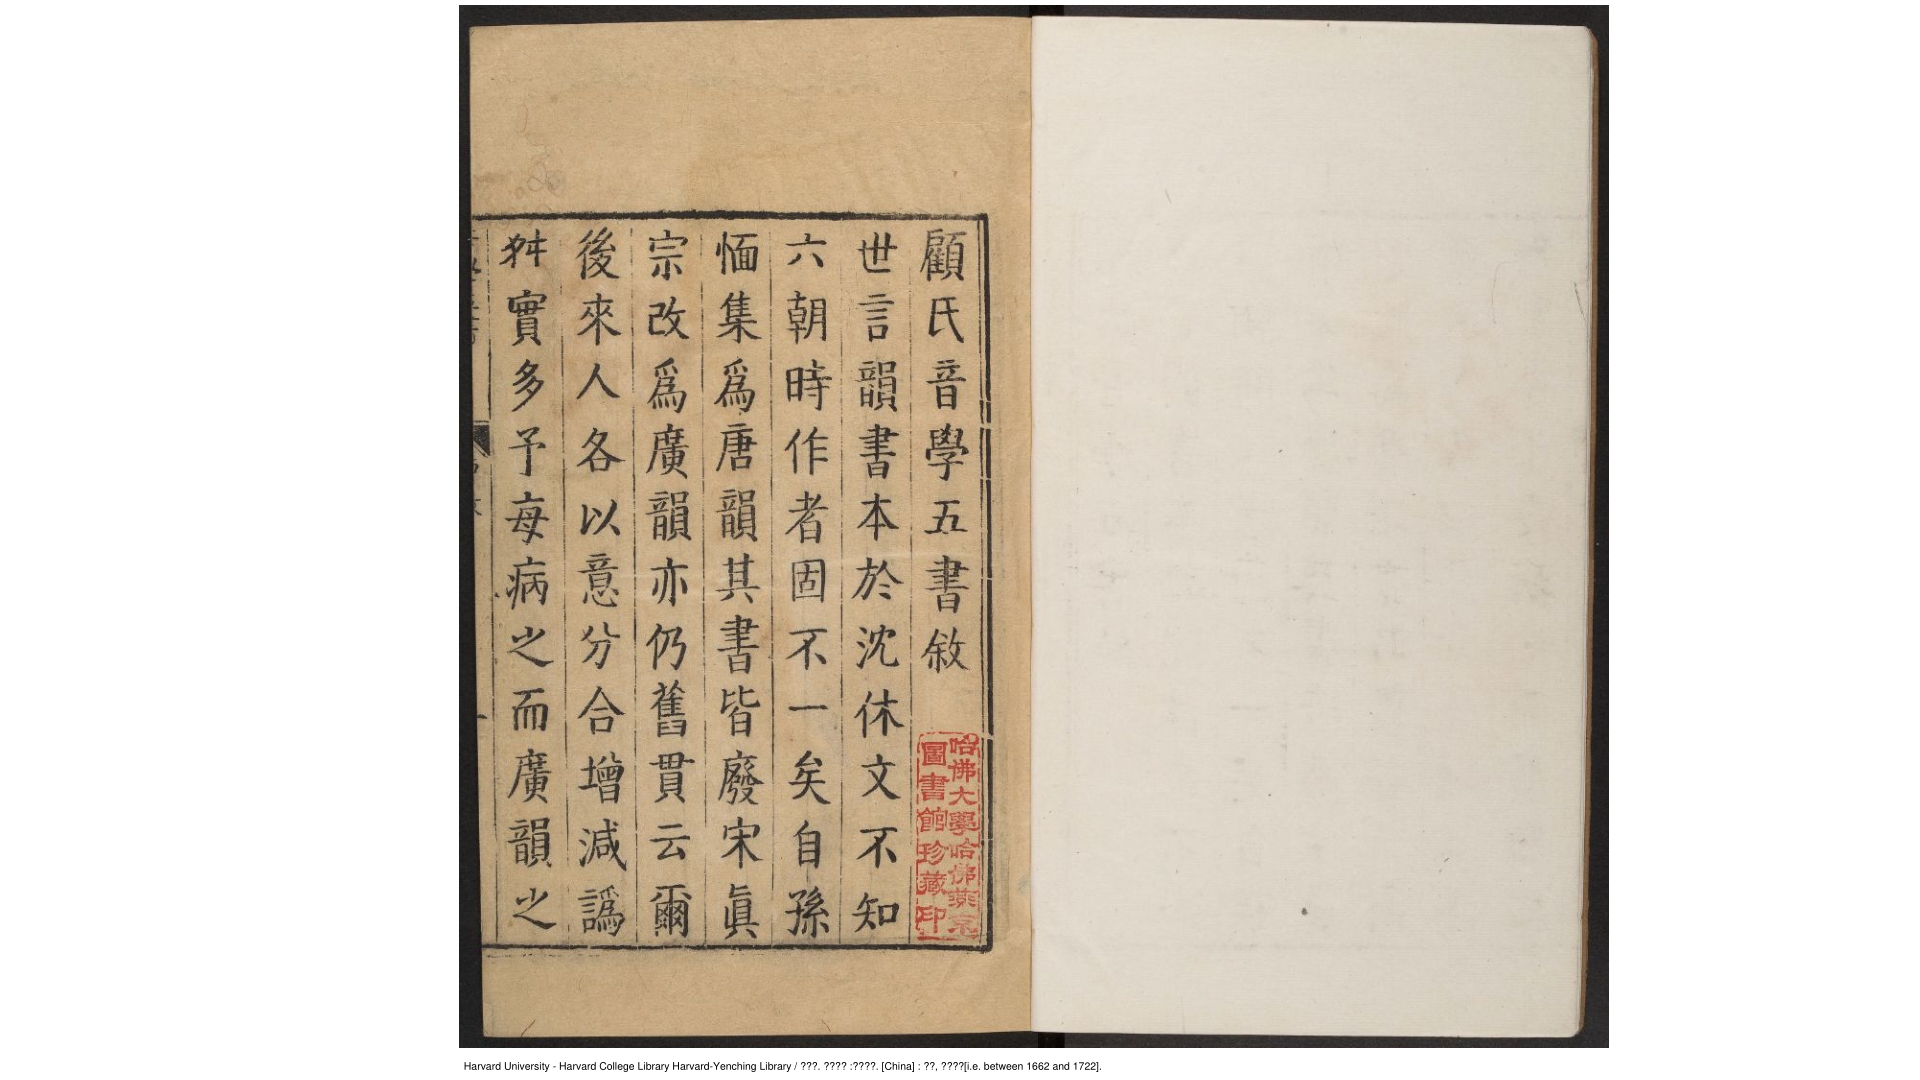 顧氏音學五書敘
世言韻書本於沈休文不知
六朝時作者固不一矣自孫
愐集爲唐韻其書皆廢宋眞
宗改爲廣韻亦仍舊貫云爾
後來人各以意分合增減譌
舛實多予每病之而廣韻之
哈佛大學哈佛燕京
圖書館珍藏印
Harvard University - Harvard College Library Harvard-Yenching Library / ???. ???? :????. [China] : ??, ????[i.e. between 1662 and 1722].